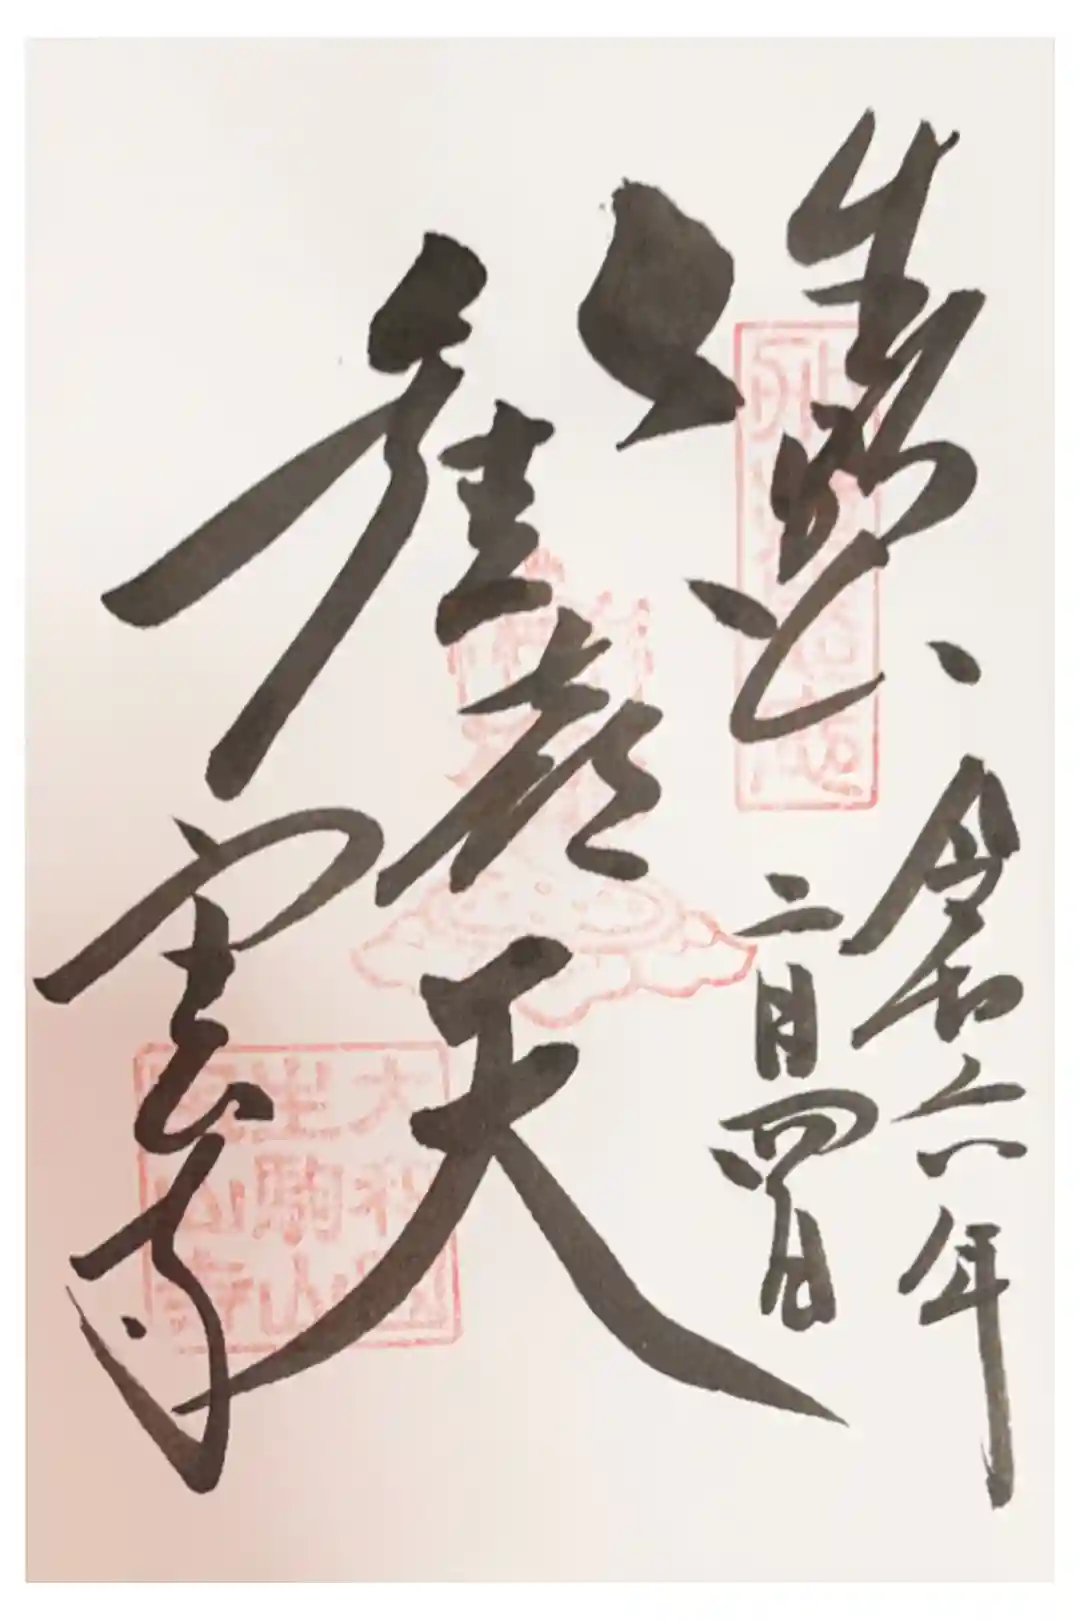 生駒山
令和六年
二月四日
歓喜天
宝山寺
大和國
生駒山
寶山寺